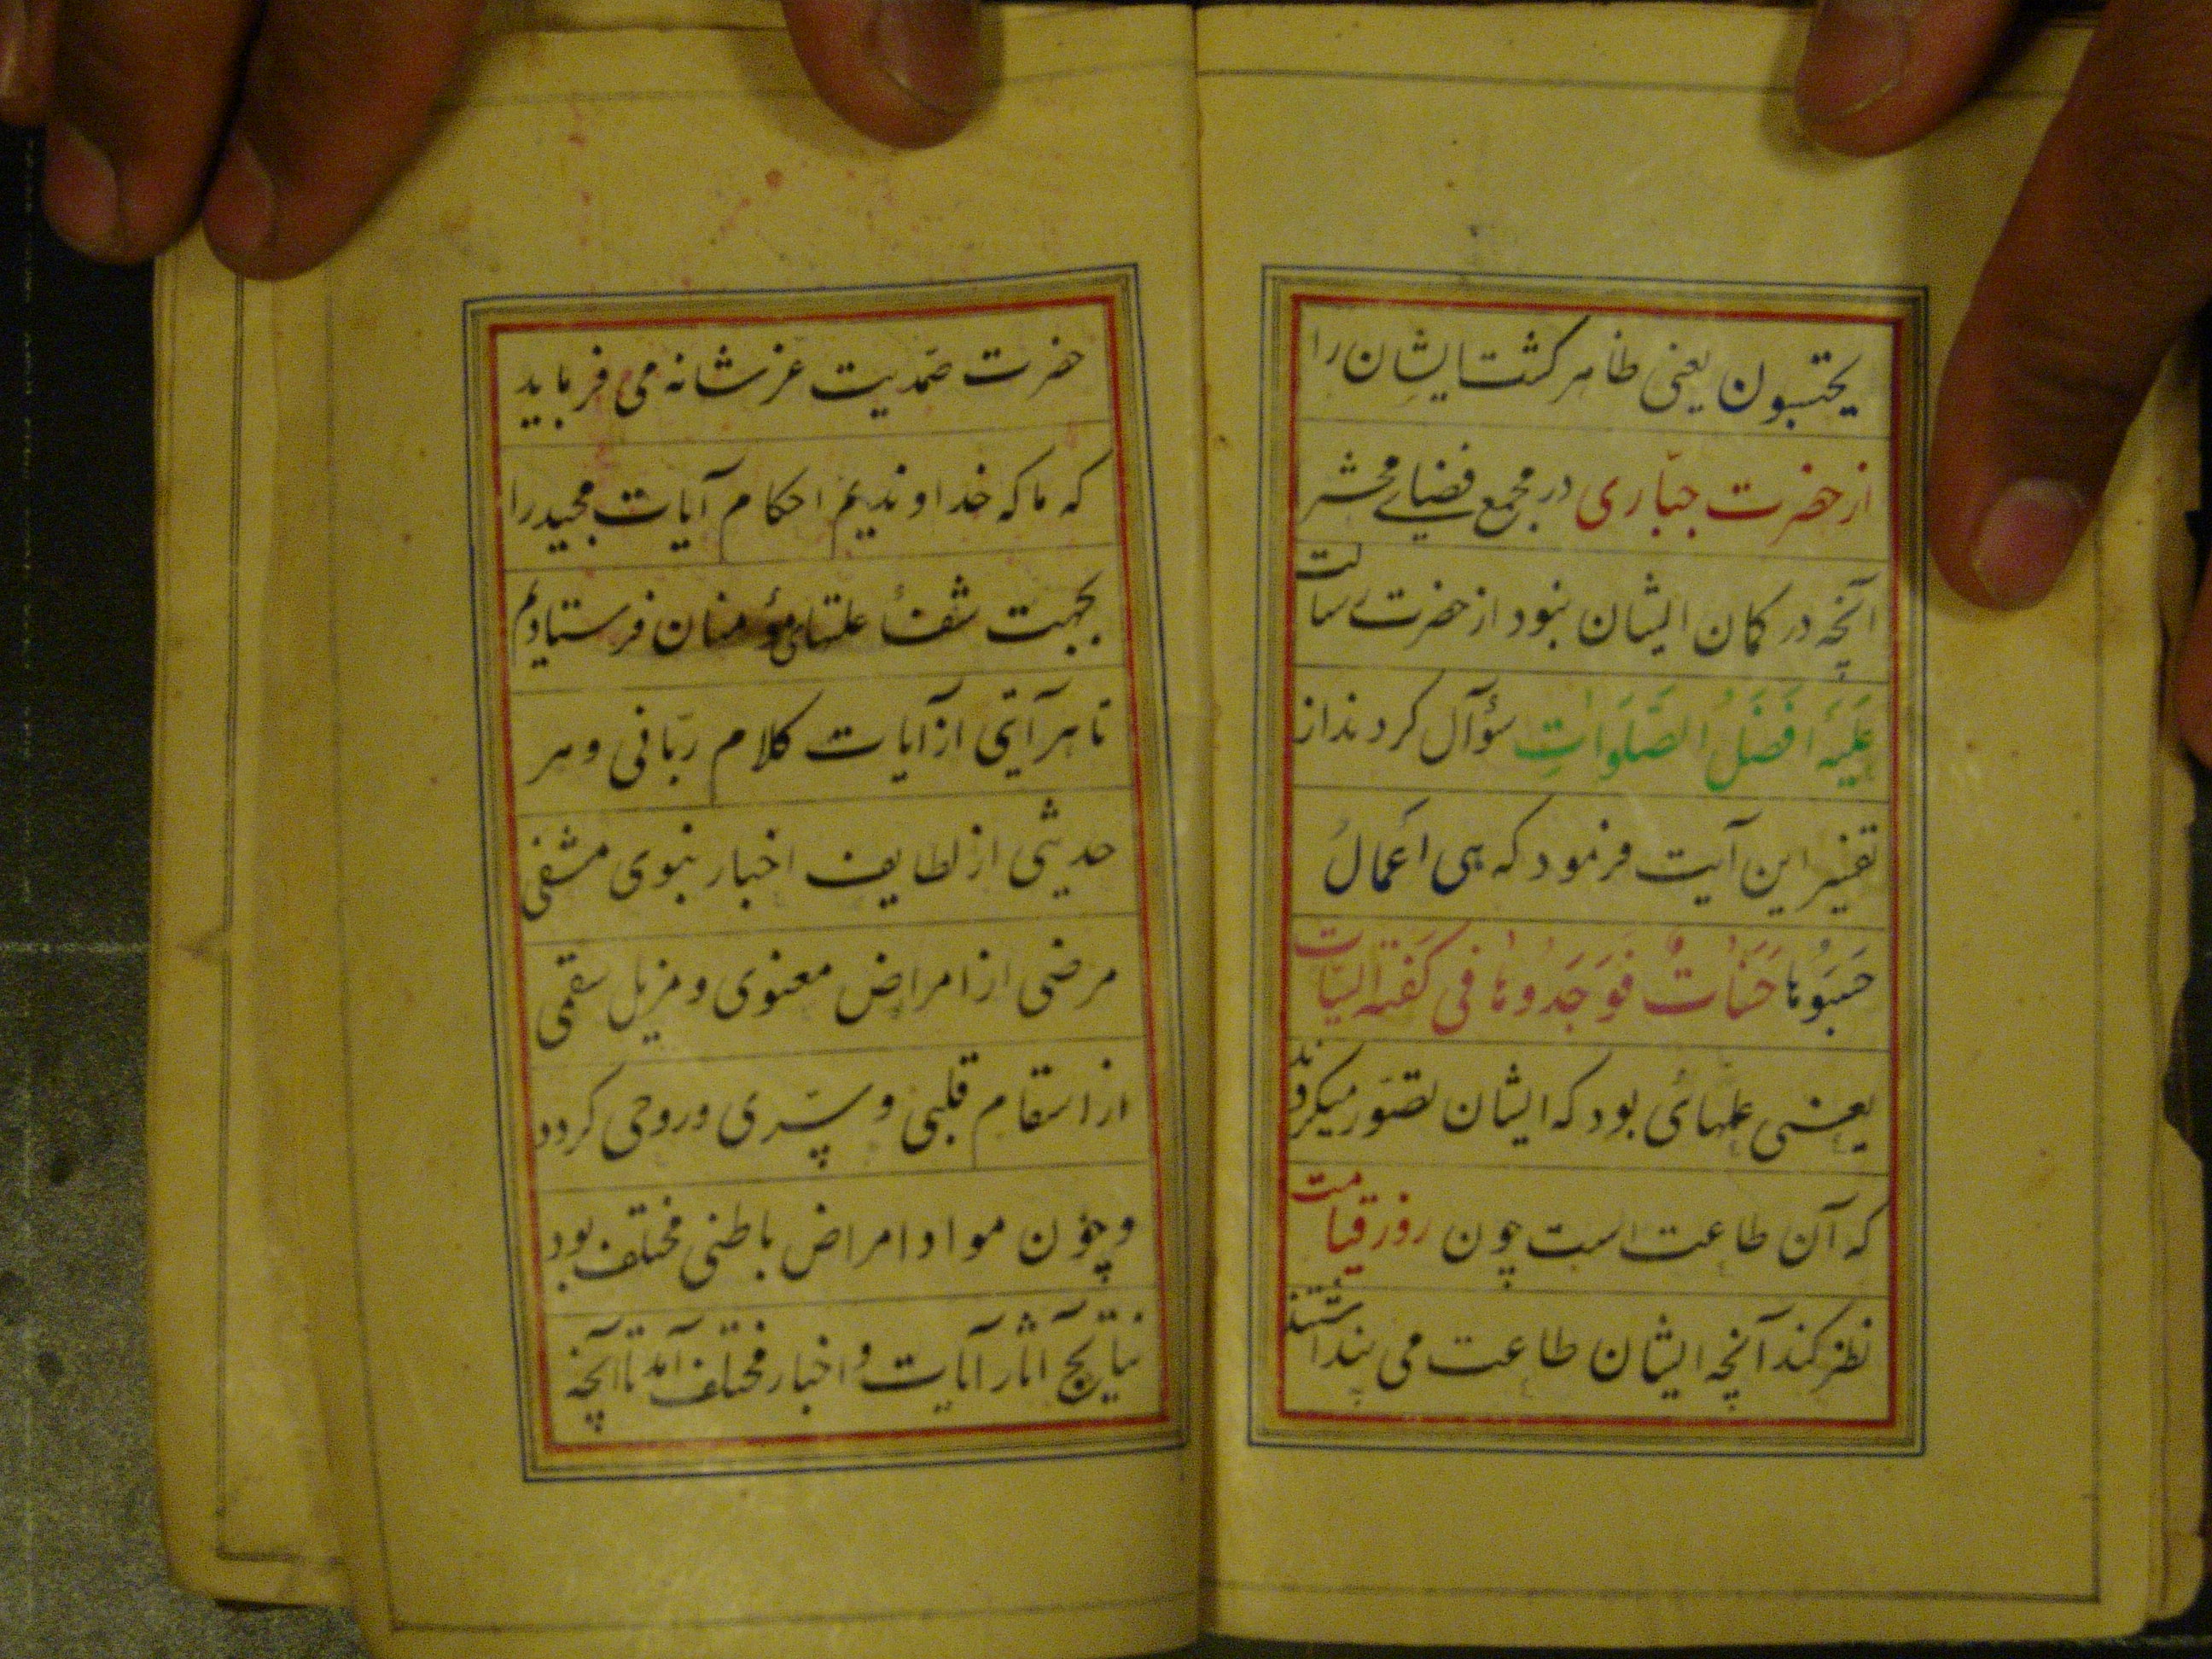 یحتسبون یعنی ظاهر کشت ایشان را
از حضرت جبّاری در مجمع فضای محشر
آنچه در کمان ایشان نبود از حضرت رسالت
عَلَیْهِ اَفْضَلُ الصَّلَواتِ سؤآل کردند از
تفسیر این آیت فرمود که هی اَعمالُ
حَسَبُوها حَسَناتٌ فَوَجَدُوها فی کَفَّةِ السَّیِّاَت
یعنی عملهائی بود که ایشان تصّور میکردند
که آن طاعت است چون روز قیامت
نظر کنند آنچه ایشان طاعت می پنداشتند
حضرت صمّدیت عزشانه می فرماید
که ما که خداوندیم احکام آیات مجید را
بجهت شفأ علتهای مؤمنان فرستادیم
تا هر آیتی از آیات کلام ربّانی و هر
حدیثی از لطایف اخبار نبوی مشفی
مرضی از امراض معنوی و مزیل سقمی
از اسقام قلبی و سّری و روحی کردد
و چون مواد امراض باطنی مختلف بود
نتایج آثار آیات و اخبار مختلف آمد تا آنچه